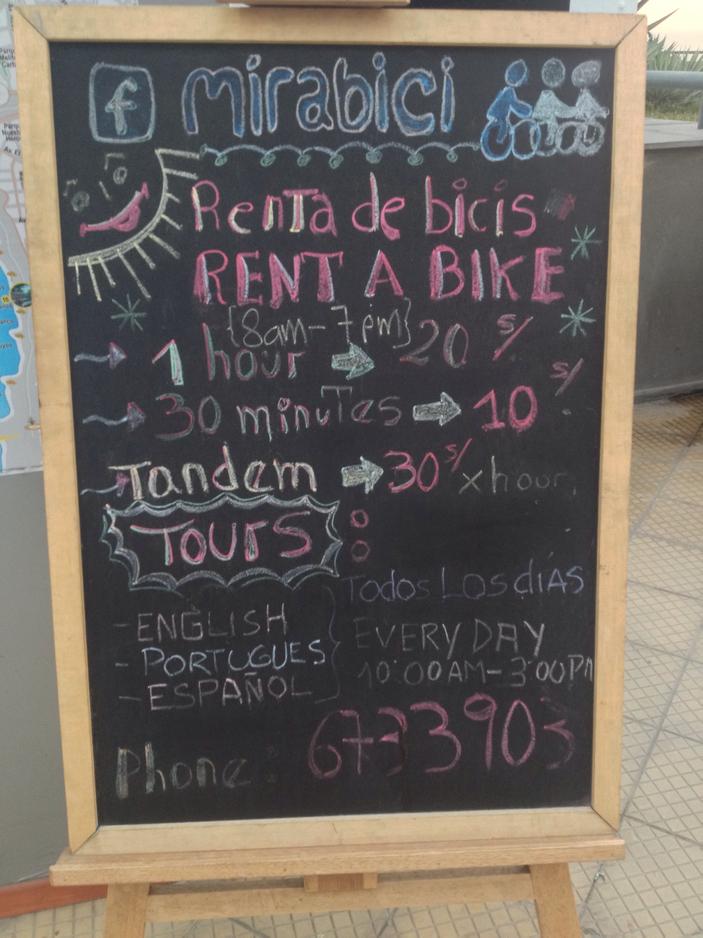 f mirabici
Renta de bicis
RENT A BIKE
{8am-7pm}
1 hour → 20 s/
30 minutes → 10 s/.
Tandem → 30 s/ x hour
TOURS :
Todos Los días
- ENGLISH
- PORTUGUES
- ESPAÑOL
EVERY DAY
10:00 AM-3:00 PM
Phone : 6733903